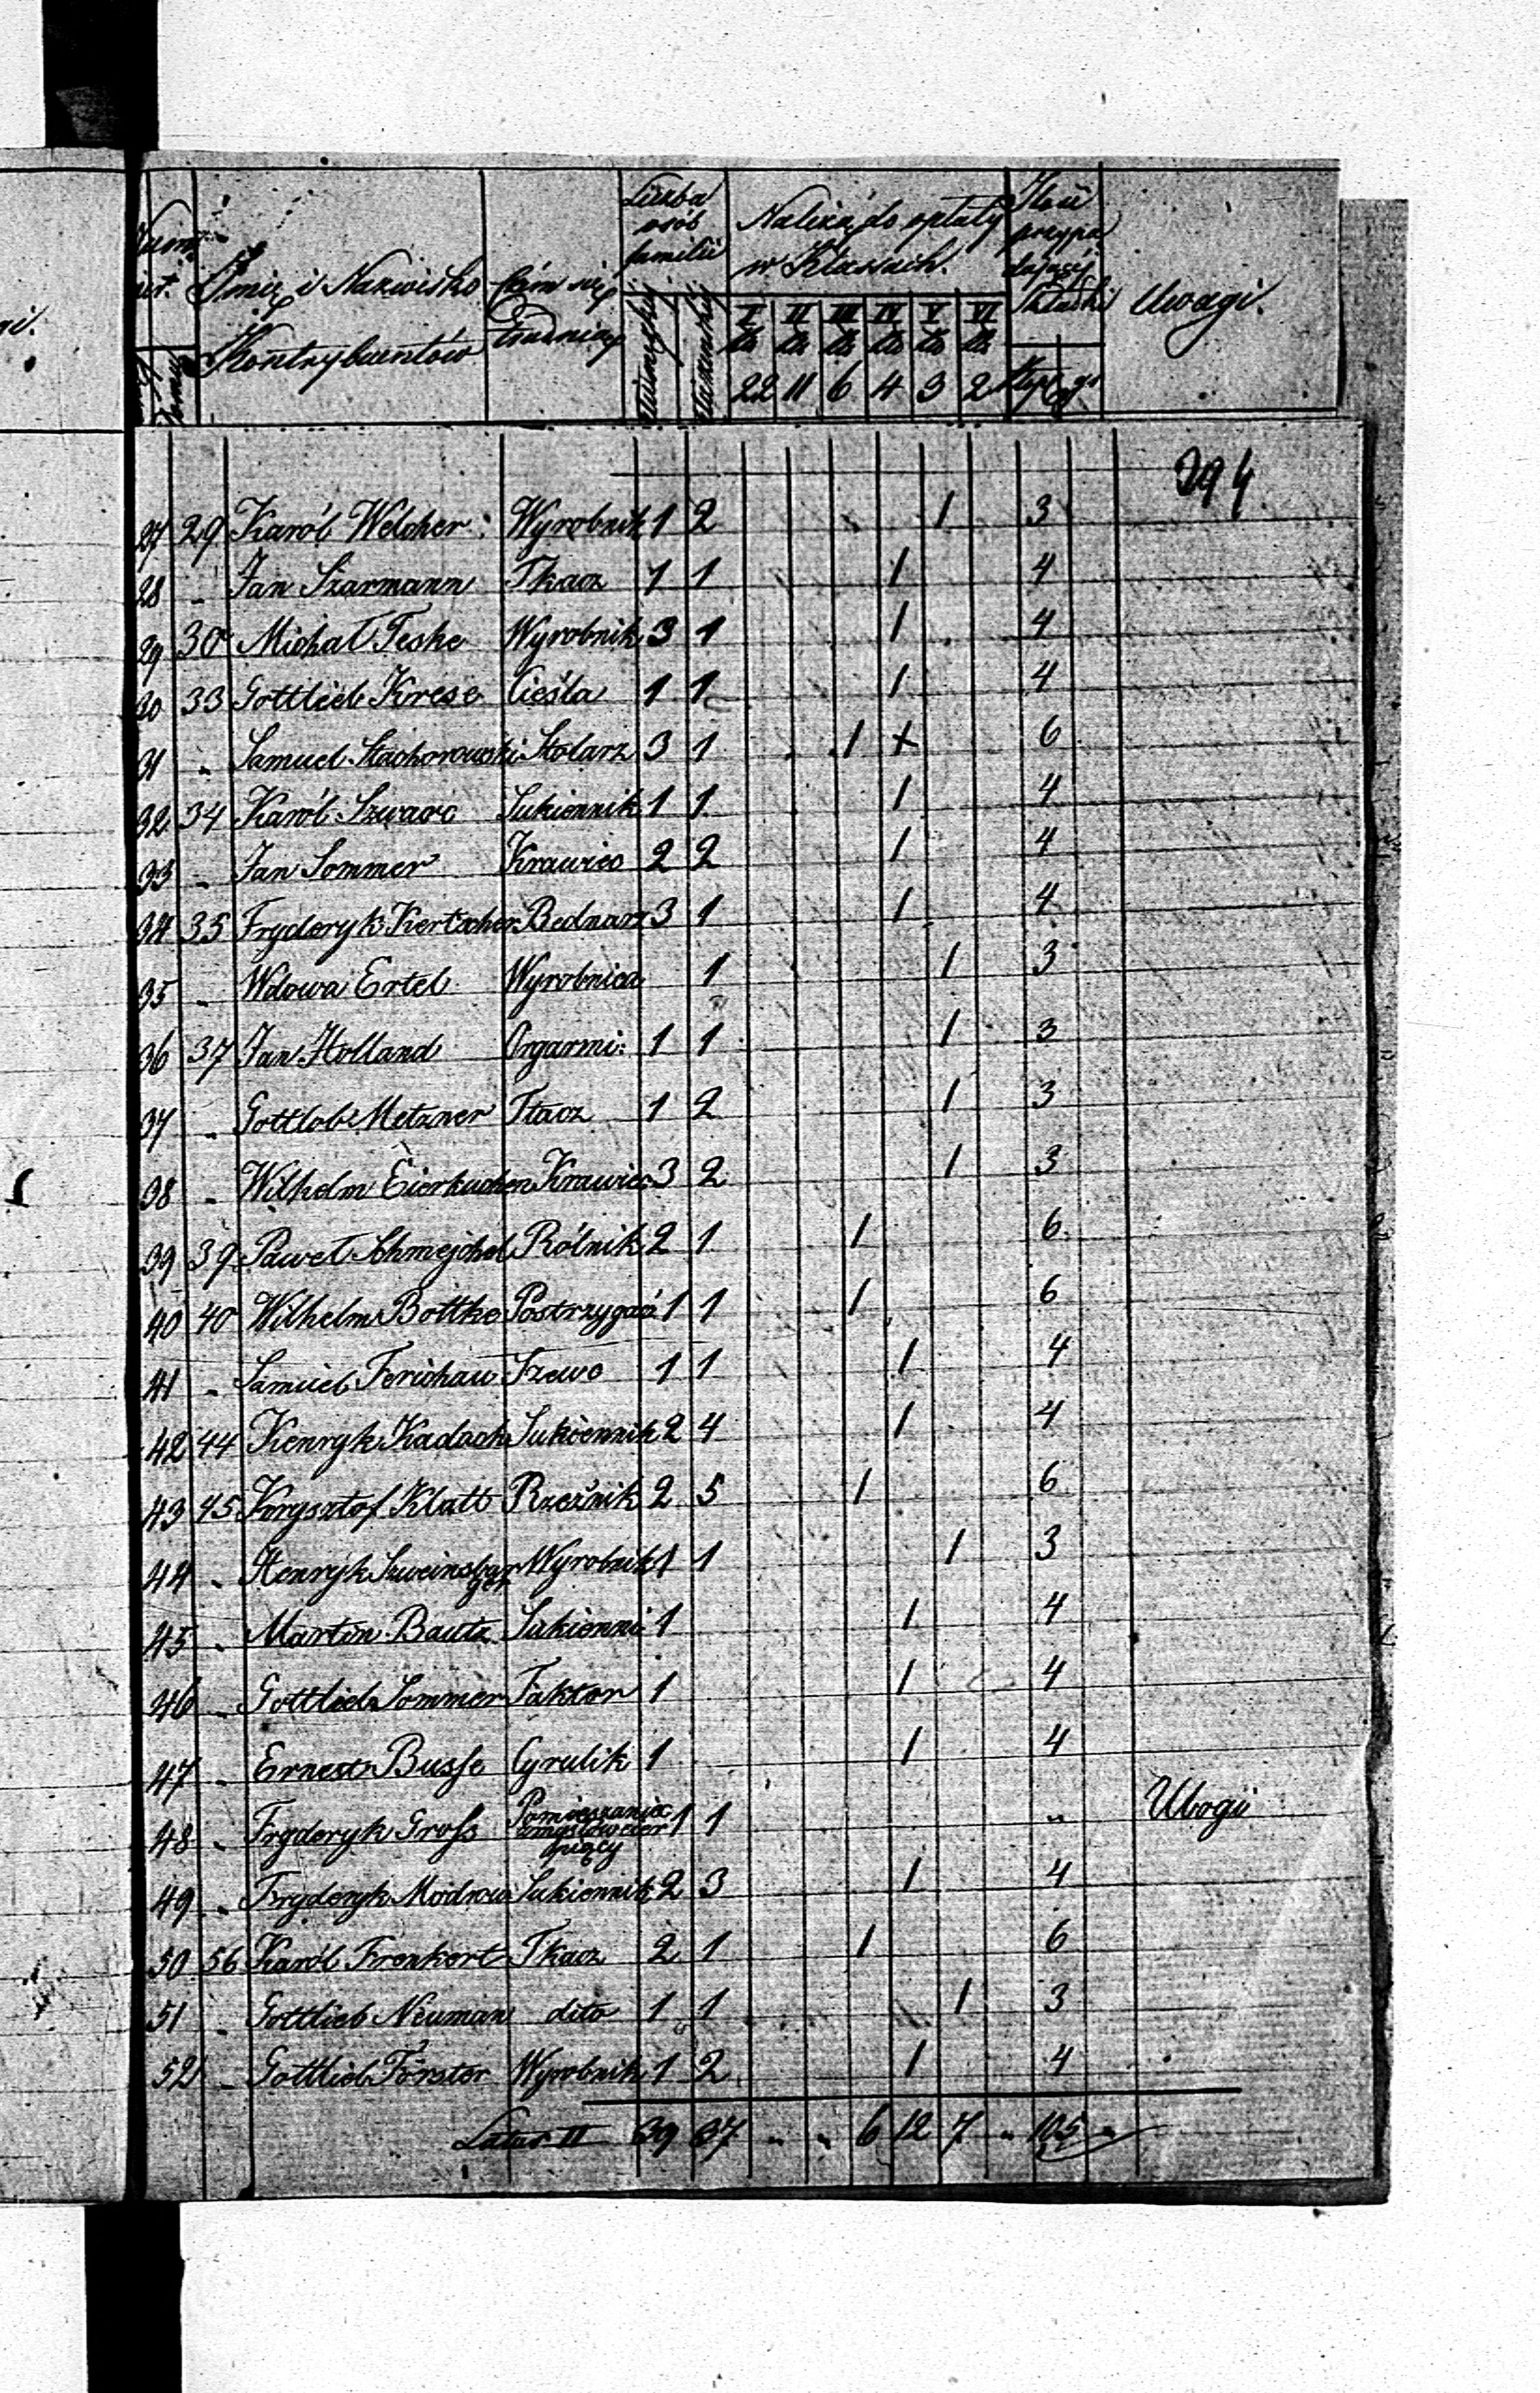 gi.
Imię i Nazwisko
Kontrybuentów
Czém się
trudnią
Liczba
osób
familii
Męzkiéj
Żeńskiéj
Należą do opłaty
w Klassach.
I II III IV V VI
22 11 6 4 3 2
Ilość
przypa
dającéj
Składki
Uwagi.
294
27 29 Karól Welcher Wyrobnik 1 2 1 3
28 „ Jan Szarmann Tkacz 1 1 1 4
29 30 Michał Teske Wyrobnik 3 1 1 4
30 33 Gottlieb Krese Cieśla 1 1 1 4
31 „ Samuel Stachorowski Stolarz 3 1 1 + 6
32 34 Karól Szwarc Sukiennik 1 1 1 4
33 „ Jan Sommer Krawiec 2 2 1 4
34 35 Fryderyk Kertscher Bednarz 3 1 1 4
35 „ Wdowa Ertel Wyrobnica 1 1 3
36 37 Jan Holland Organmi: 1 1 1 3
37 „ Gottlob Metzner Tkacz 1 2 1 3
38 „ Wilhelm Eierkuchen Krawiec 3 2 1 3
39 39 Paweł Schmejchel Rólnik 2 1 1 6
40 40 Wilhelm Bottke Postrzygacz 1 1 1 6
41 „ Samuel Ferichau Szewc 1 1 1 4
42 44 Henryk Kadach Sukiennik 2 4 1 4
43 45 Krysztof Klatt Rzeźnik 2 5 1 6
44 „ Henryk Szweinsberger Wyrobnik 1 1 1 3
45 „ Martin Bautz Sukienni 1 1 4
46 „ Gottlieb Sommer Faktor 1 1 4
47 „ Ernest Busse Cyrulik 1 1 4
48 „ Fryderyk Gross Pomieszanie zmysłów cier piący 1 1 „ Ubogi
49 „ Fryderyk Modrow Sukiennik 2 3 1 4
50 56 Karól Frenkert Tkacz 2 1 1 6
51 „ Gottlieb Neuman dito 1 1 1 3
52 „ Gottlieb Förster Wyrobnik 1 2 1 4
Latus II 39 37 „ „ 6 12 7 „ 105 „